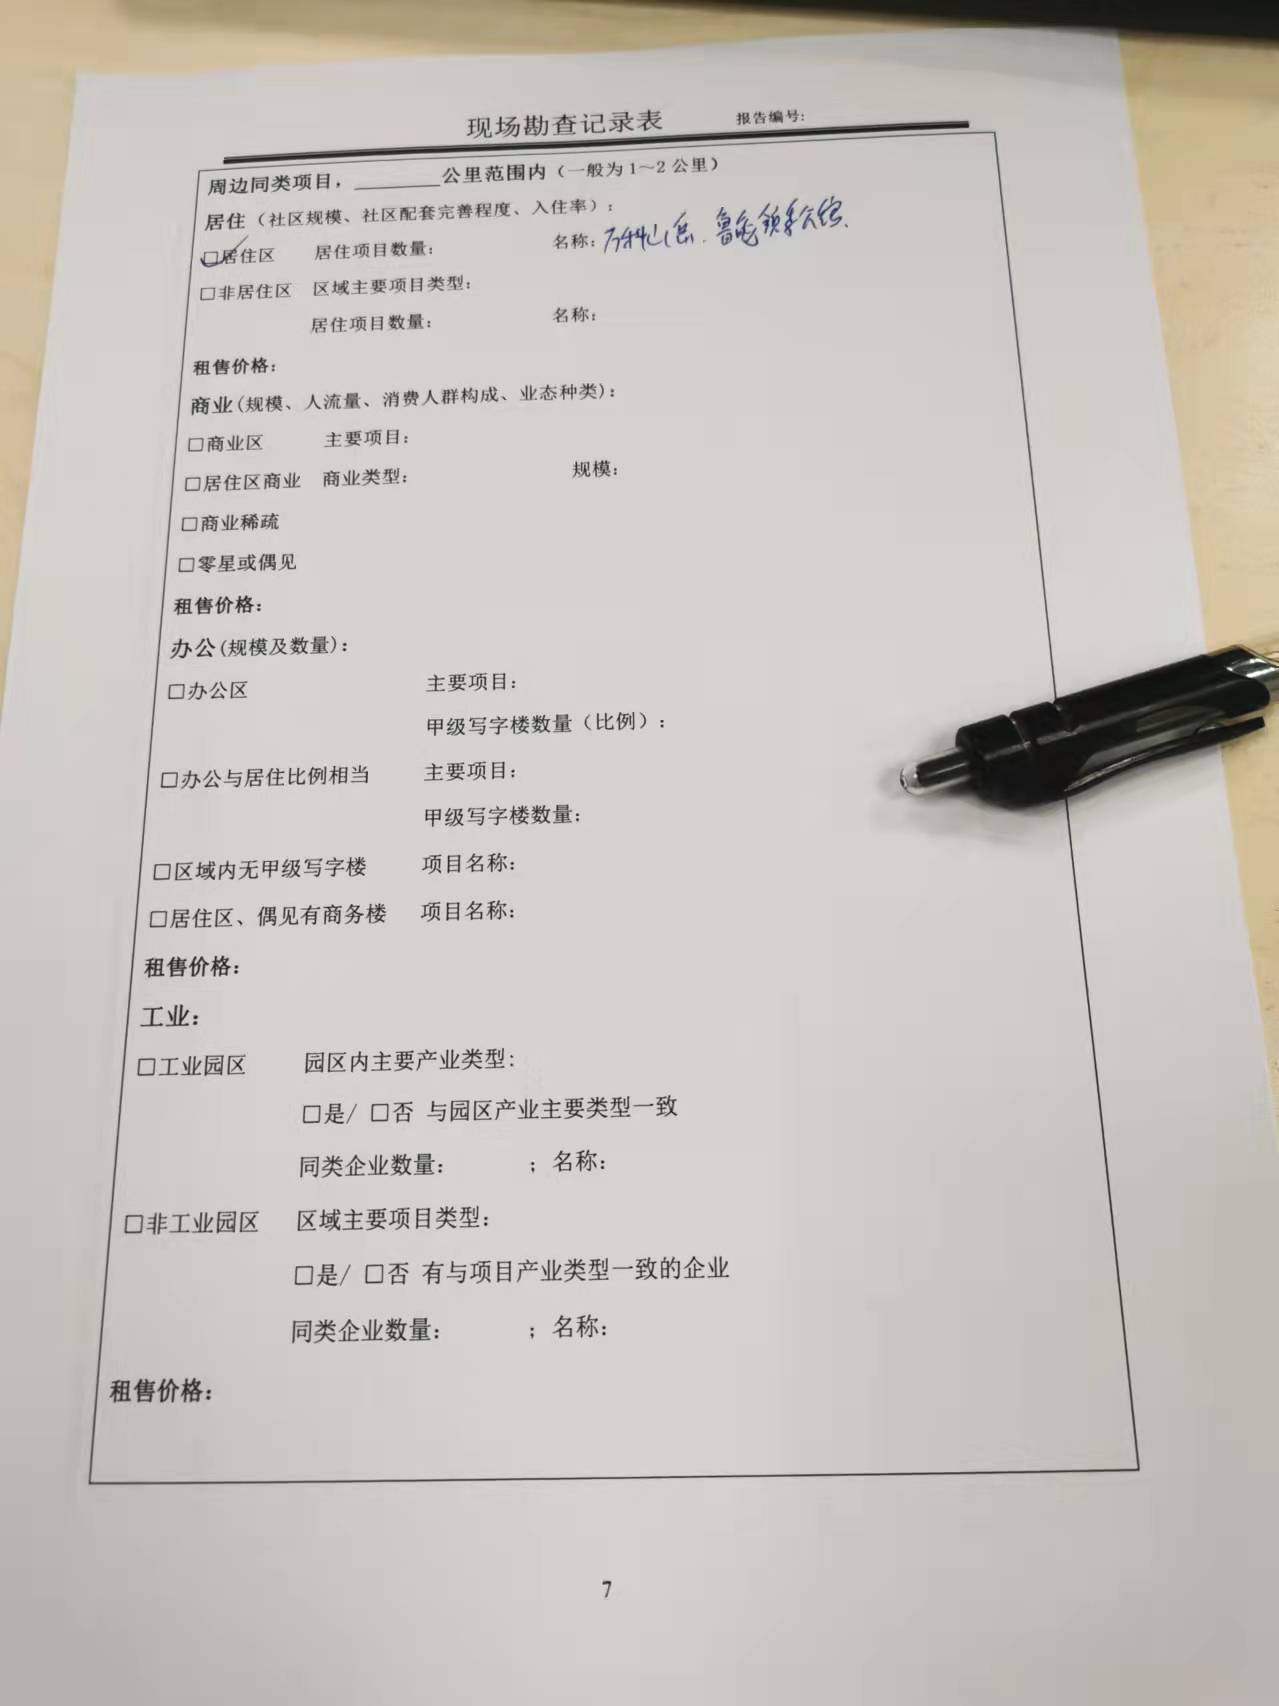 现场勘查记录表 报告编号:
周边同类项目，________公里范围内（一般为1～2公里）
居住（社区规模、社区配套完善程度、入住率）：
☑居住区 居住项目数量： 名称：万科山 鲁能领秀公馆
□非居住区 区域主要项目类型：
居住项目数量： 名称：
租售价格：
商业(规模、人流量、消费人群构成、业态种类)：
□商业区 主要项目：
□居住区商业 商业类型： 规模：
□商业稀疏
□零星或偶见
租售价格：
办公(规模及数量)：
□办公区 主要项目：
甲级写字楼数量（比例）：
□办公与居住比例相当 主要项目：
甲级写字楼数量：
□区域内无甲级写字楼 项目名称：
□居住区、偶见有商务楼 项目名称：
租售价格：
工业：
□工业园区 园区内主要产业类型：
□是/ □否 与园区产业主要类型一致
同类企业数量： ；名称：
□非工业园区 区域主要项目类型：
□是/ □否 有与项目产业类型一致的企业
同类企业数量： ；名称：
租售价格：
7